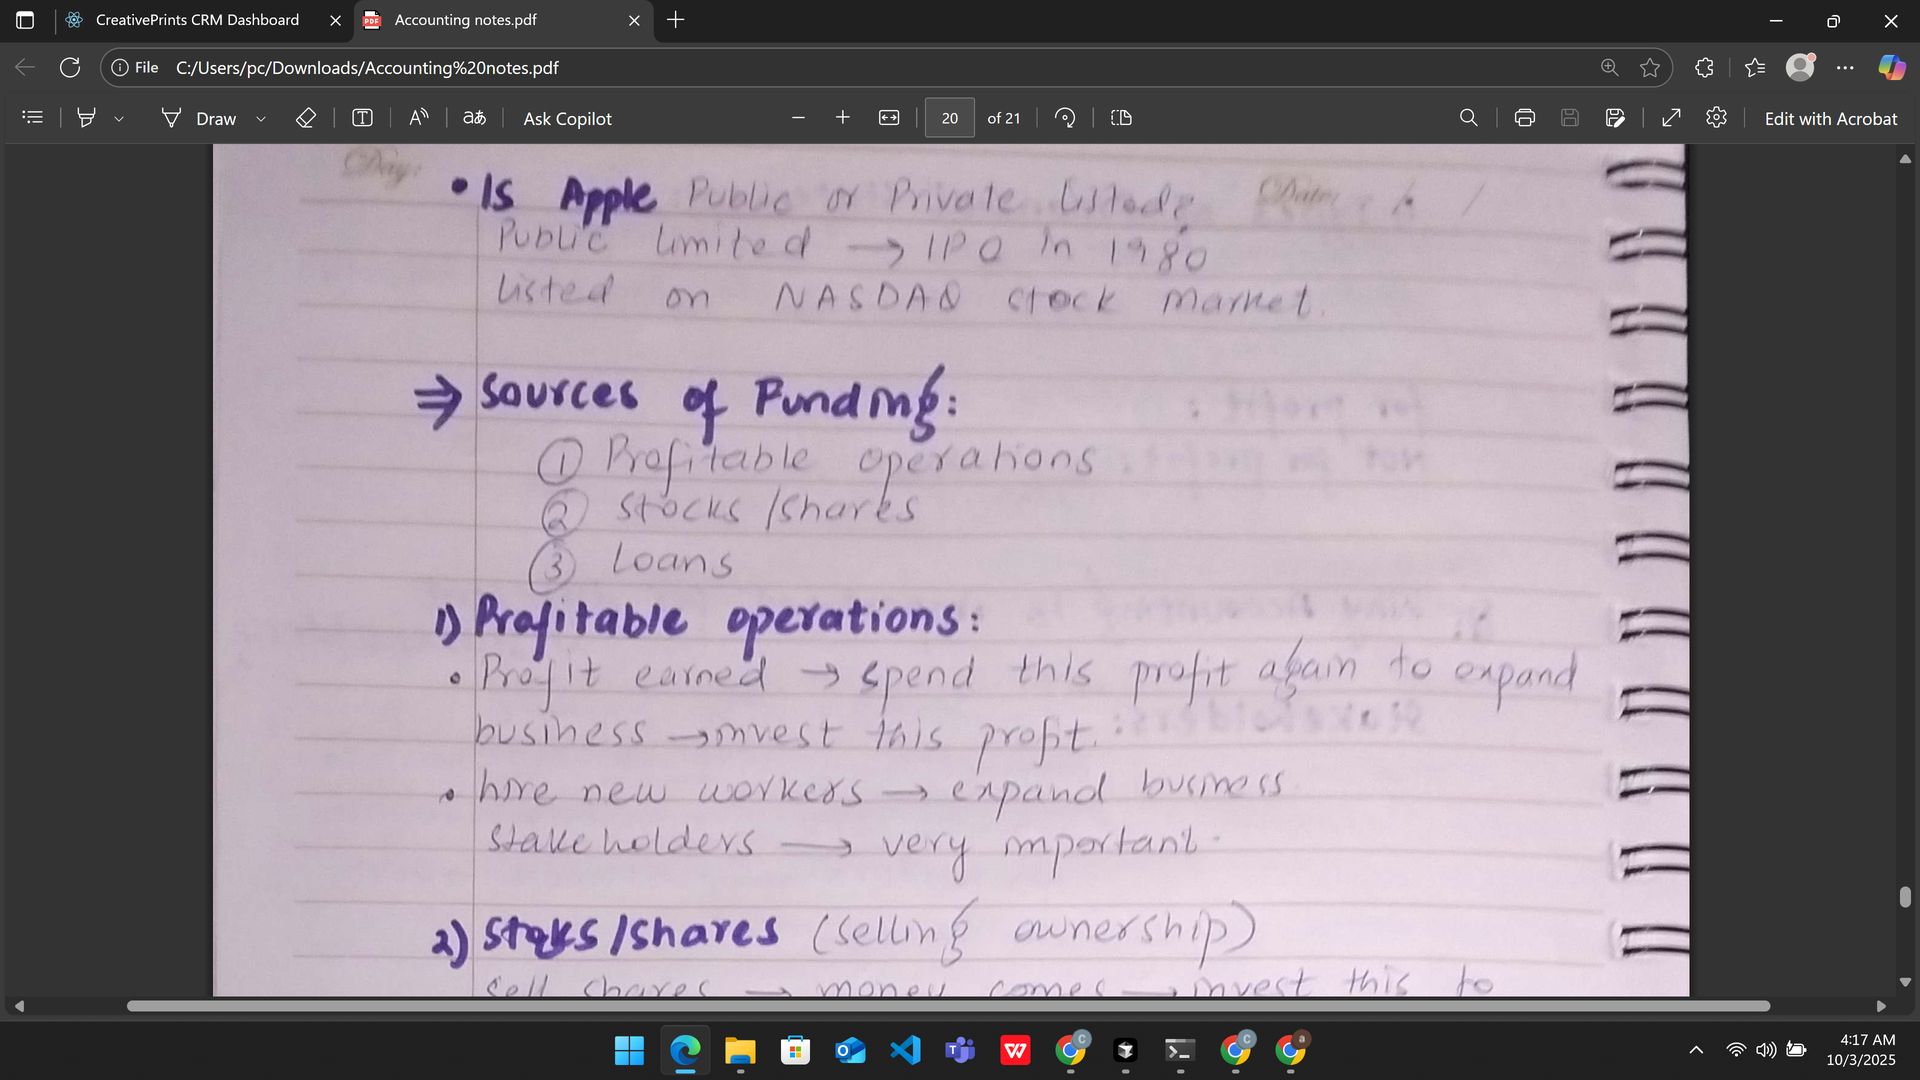 CreativePrints CRM Dashboard
Accounting notes.pdf
File
C:/Users/pc/Downloads/Accounting%20notes.pdf
Draw
Ask Copilot
20 of 21
Edit with Acrobat
Day:
Date: / /
• Is Apple Public or Private listed?
Public limited → IPO in 1980
listed on NASDAQ stock market.
⇒ Sources of Funding:
① Profitable operations
② stocks /shares
③ Loans
1) Profitable operations:
• Profit earned → spend this profit again to expand
business → invest this profit.
• hire new workers → expand business
stakeholders → very important.
2) Stoks/shares (selling ownership)
Sell shares → money comes → invest this to
4:17 AM
10/3/2025